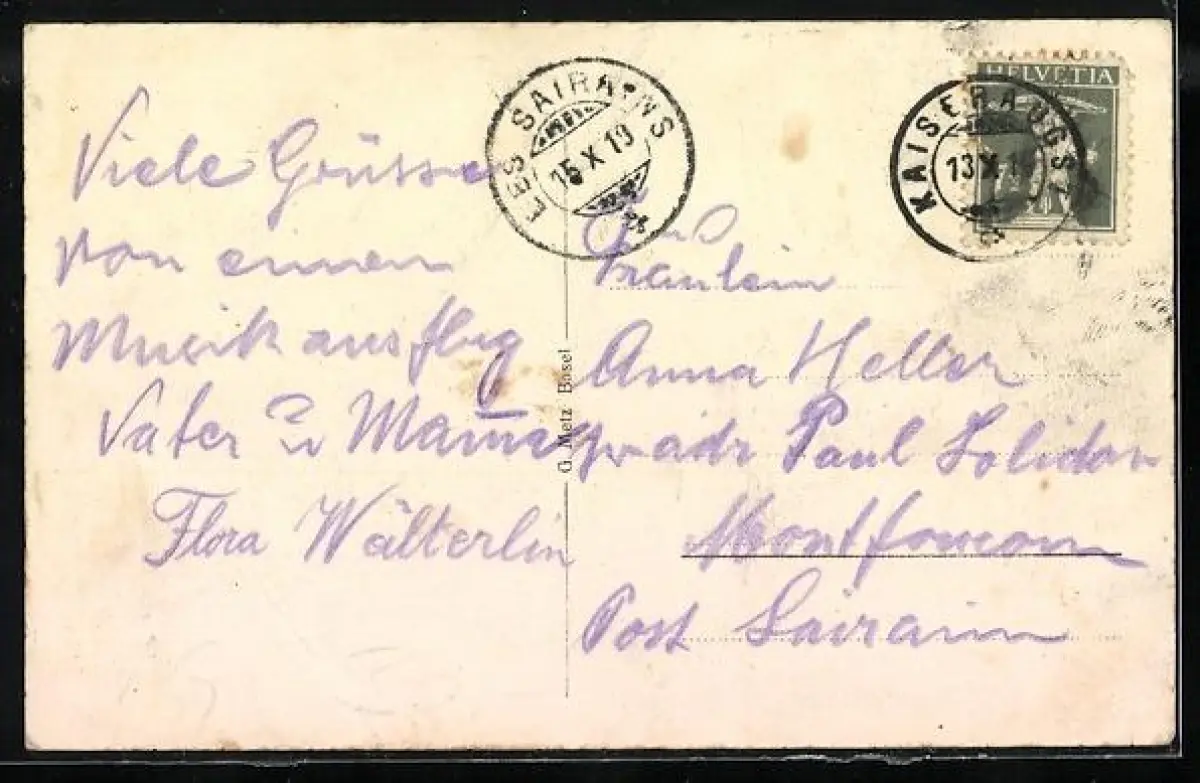 Viele Grüsse
von einem
Musikausflug
Vater u Mama
Flora Wälterlin
LES SAIRAINS
15 X 19
KAISERAUGST
13 X
HELVETIA
Fräulein
Anna Heller
adr Paul
Montfaucon
Post Sairain
G. Metz Basel